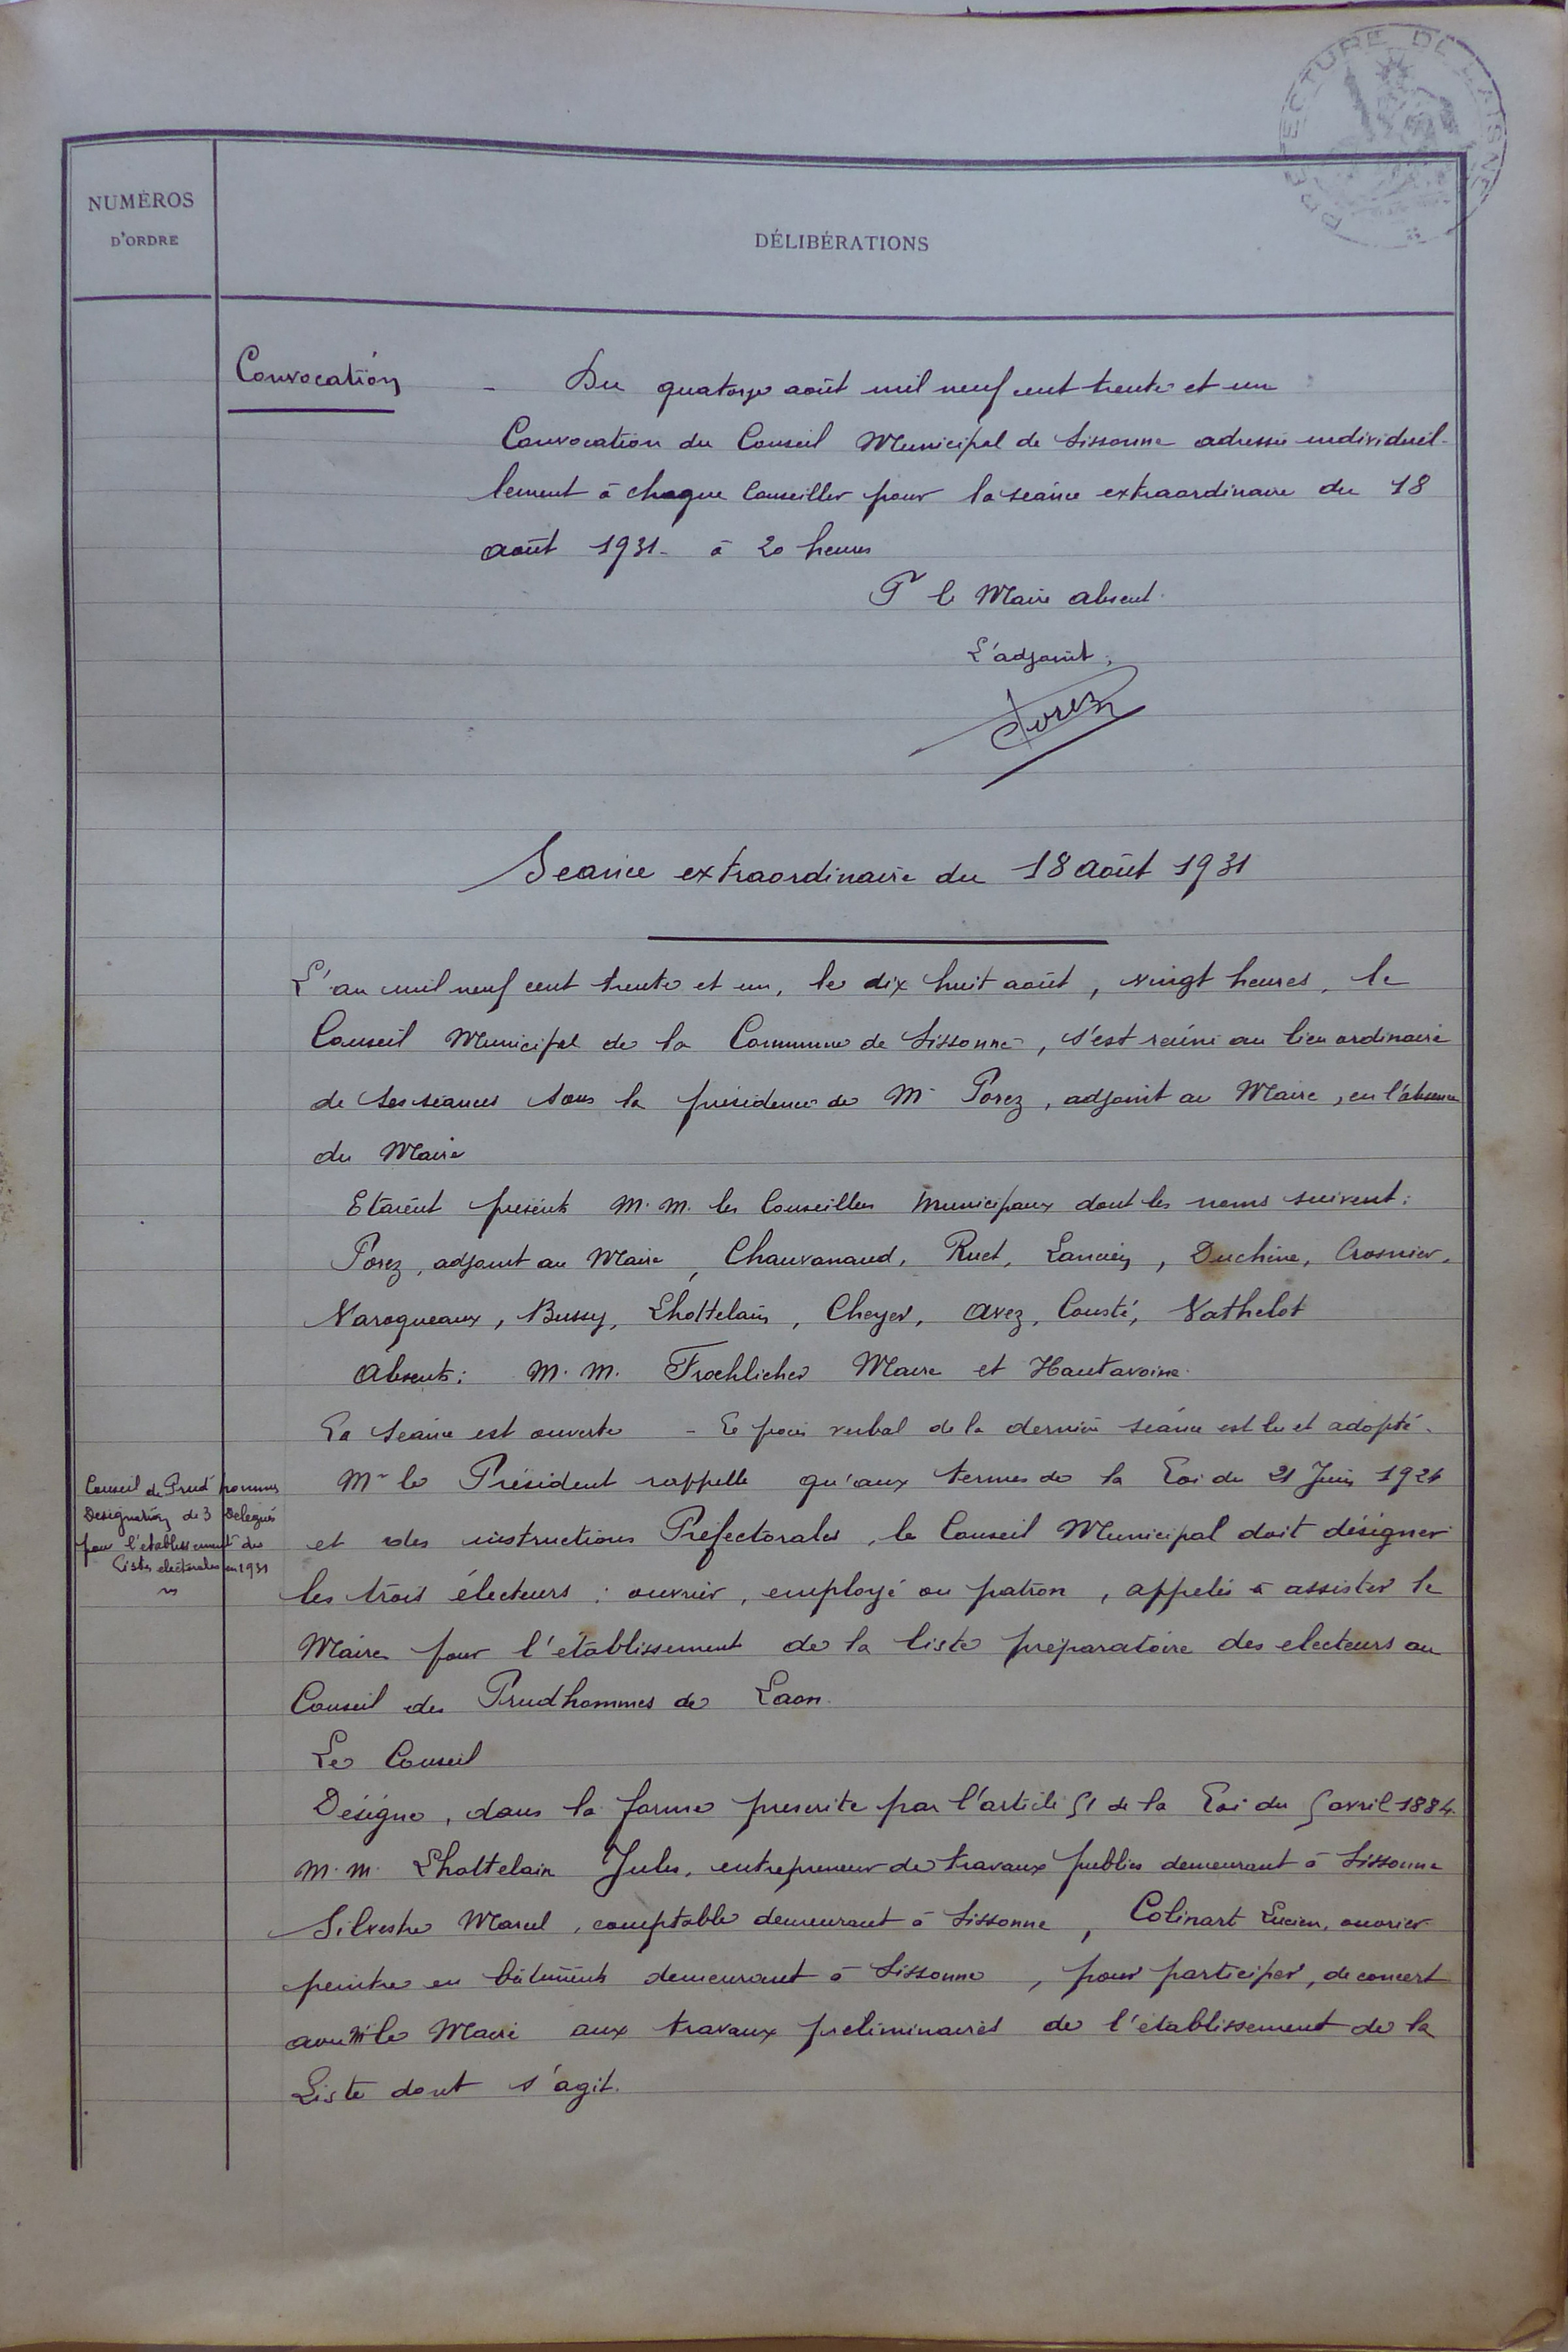 PREFECTURE DE L'AISNE
NUMÉROS
D'ORDRE
DÉLIBÉRATIONS
Convocation - Du quatorze août mil neuf cent trente et un
Convocation du Conseil Municipal de Sissonne adressée individuel-
lement à chaque Conseiller pour la séance extraordinaire du 18
août 1931 - à 20 heures
Pr le Maire absent.
L'adjoint,
Porez
Séance extraordinaire du 18 août 1931
L'an mil neuf cent trente et un, le dix huit août, vingt heures, le
Conseil Municipal de la Commune de Sissonne, s'est réuni au lieu ordinaire
de ses séances sous la présidence de Mr Porez, adjoint au Maire, en l'absence
du Maire
Etaient présents M.M. les Conseillers Municipaux dont les noms suivent:
Porez, adjoint au Maire, Chauvanaud, Ruet, Lancien, Duchêne, Crosnier,
Naroqueaux, Bussy, Lhottelain, Cheyer, Avez, Cousté, Vathelot
Absents: M.M. Froehlicher Maire et Hautavoine.
La séance est ouverte - Le procès verbal de la dernière séance est lu et adopté.
Conseil de Prud'hommes
Designation de 3 Délégués
pour l'établissement des
Listes électorales en 1931
Mr le Président rappelle qu'aux termes de la Loi du 21 Juin 1924
et des instructions Préfectorales, le Conseil Municipal doit désigner
les trois électeurs : ouvrier, employé ou patron, appelés à assister le
Maire pour l'établissement de la liste préparatoire des electeurs au
Conseil des Prudhommes de Laon.
Le Conseil
Désigne, dans la forme prescrite par l'article 51 de la Loi du 5 avril 1884
M.M. Lhottelain Jules, entrepreneur de travaux publics demeurant à Sissonne
Silvestre Marcel, comptable demeurant à Sissonne, Colinart Lucien, ouvrier
peintre en bâtiments demeurant à Sissonne, pour participer, de concert
avec Mr le Maire aux travaux préliminaires de l'établissement de la
Liste dont s'agit.